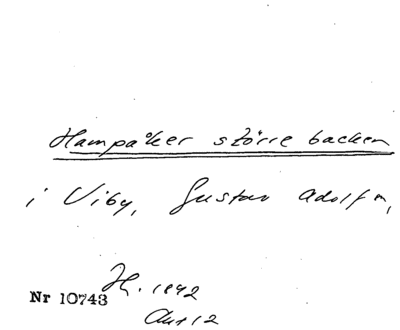 Hampåker större backen
i Viby, Gustav Adolf m,
H. 1842
Nr 10743
Akt 12